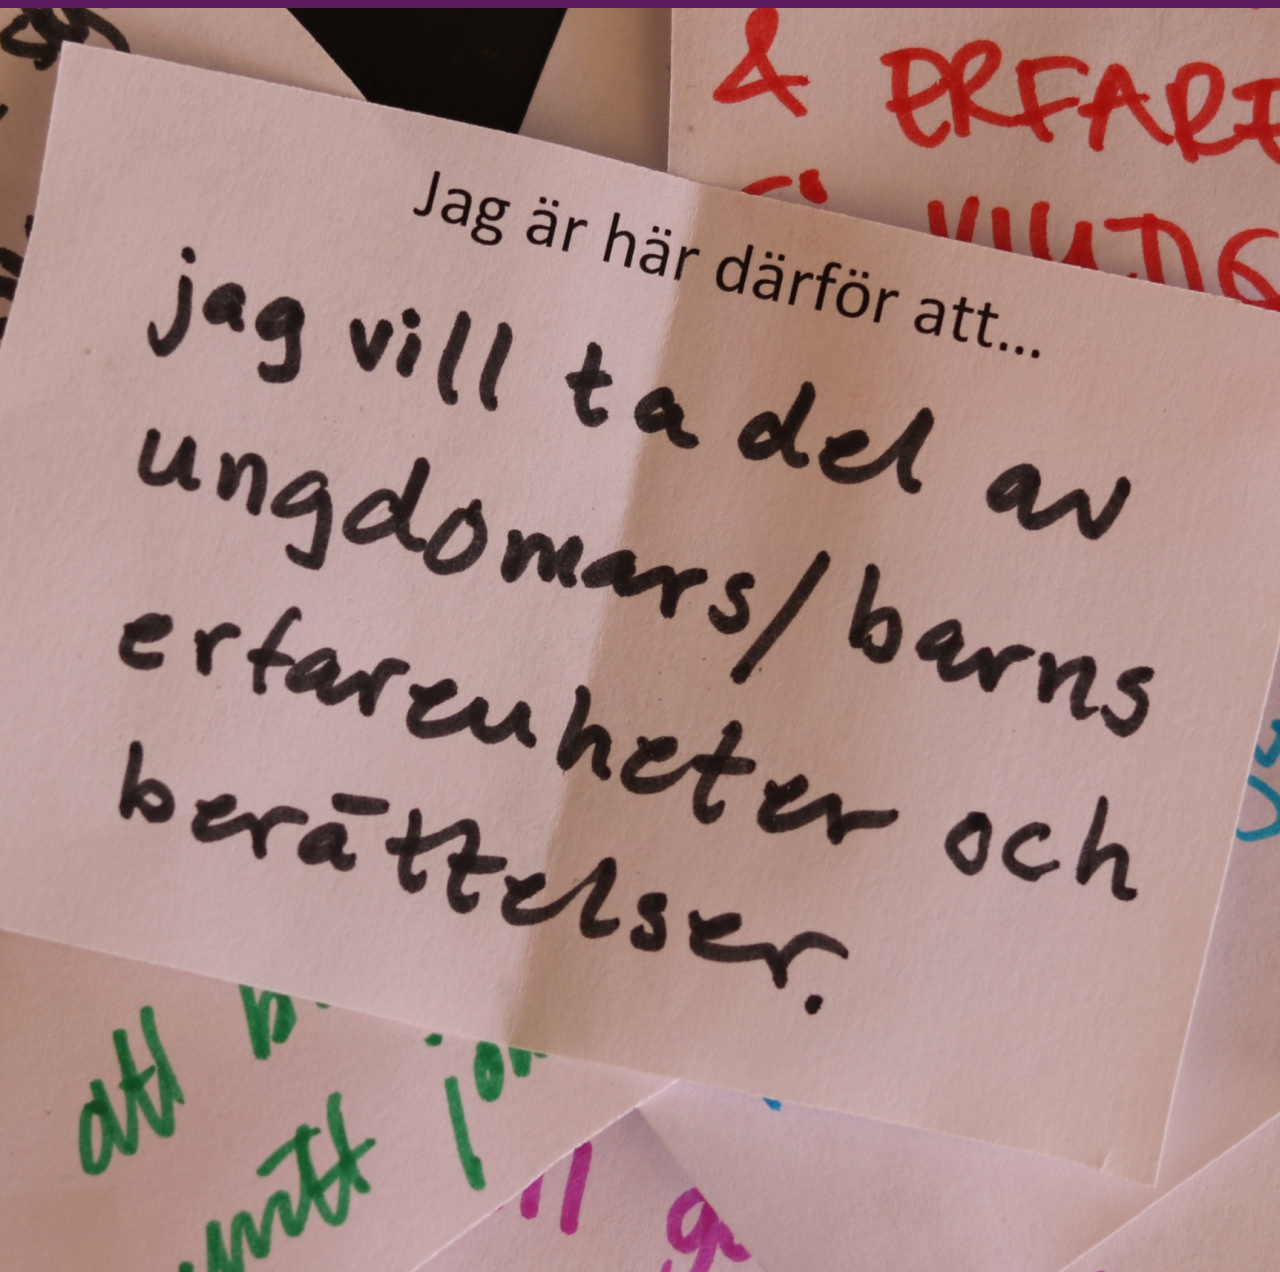 & ERFARE
Jag är här därför att...
jag vill ta del av
ungdomars/barns
erfarenheter och
berättelser.
att b
mitt jo
ll g